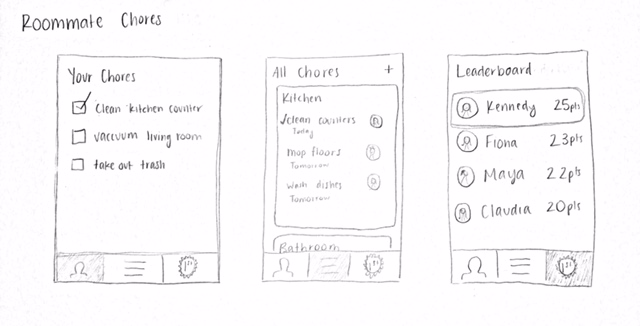 Roommate Chores
Your Chores
Clean kitchen counter
vaccuum living room
take out trash
All Chores +
Kitchen
clean counters
Today
mop floors
Tomorrow
wash dishes
Tomorrow
Bathroom
1st
Leaderboard
Kennedy 25pts
Fiona 23pts
Maya 22pts
Claudia 20pts
1st